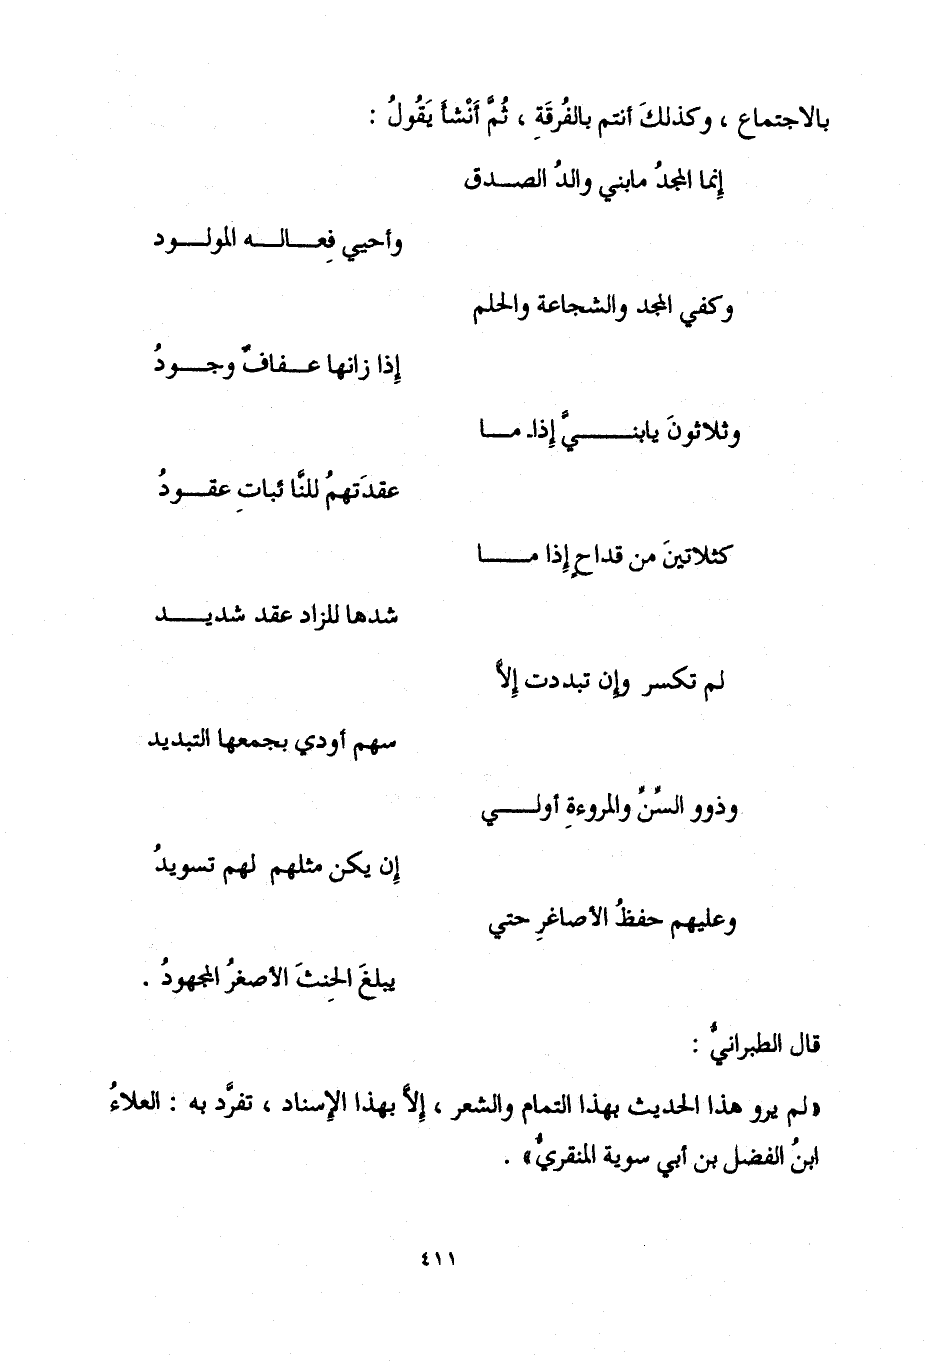 بالاجتماع ، وكذلكَ أنتم بالفُرقَةِ ، ثُمَّ أَنْشأَ يَقُولُ :
إِنما المجدُ مابني والدُ الصـــدق
وأحيي فِعـــالـــه المولـــود
وكفي المجد والشجاعة والحلم
إِذا زانها عـــفافٌ وجـــودُ
وثلاثونَ يابنـــيَّ إِذا مـــا
عقدَتهمُ للنَّا ئباتِ عقـــودُ
كثلاتينَ من قداحٍ إِذا مـــا
شدها للزاد عقد شديـــد
لم تكسر وإِن تبددت إِلاَّ
سهم أودي بجمعها التبديد
وذوو السِّنِّ والمروءةِ أولـــي
إِن يكن مثلهم لهم تسويدُ
وعليهم حفظُ الأصاغرِ حتي
يبلغَ الحِنثَ الأصغرُ المجهودُ .
قال الطبرانيُّ :
«لم يرو هذا الحديث بهذا التمام والشعر ، إِلاَّ بهذا الإِسناد ، تفرَّد به : العلاءُ
ابنُ الفضل بن أبي سوية المنقريُّ» .
٤١١